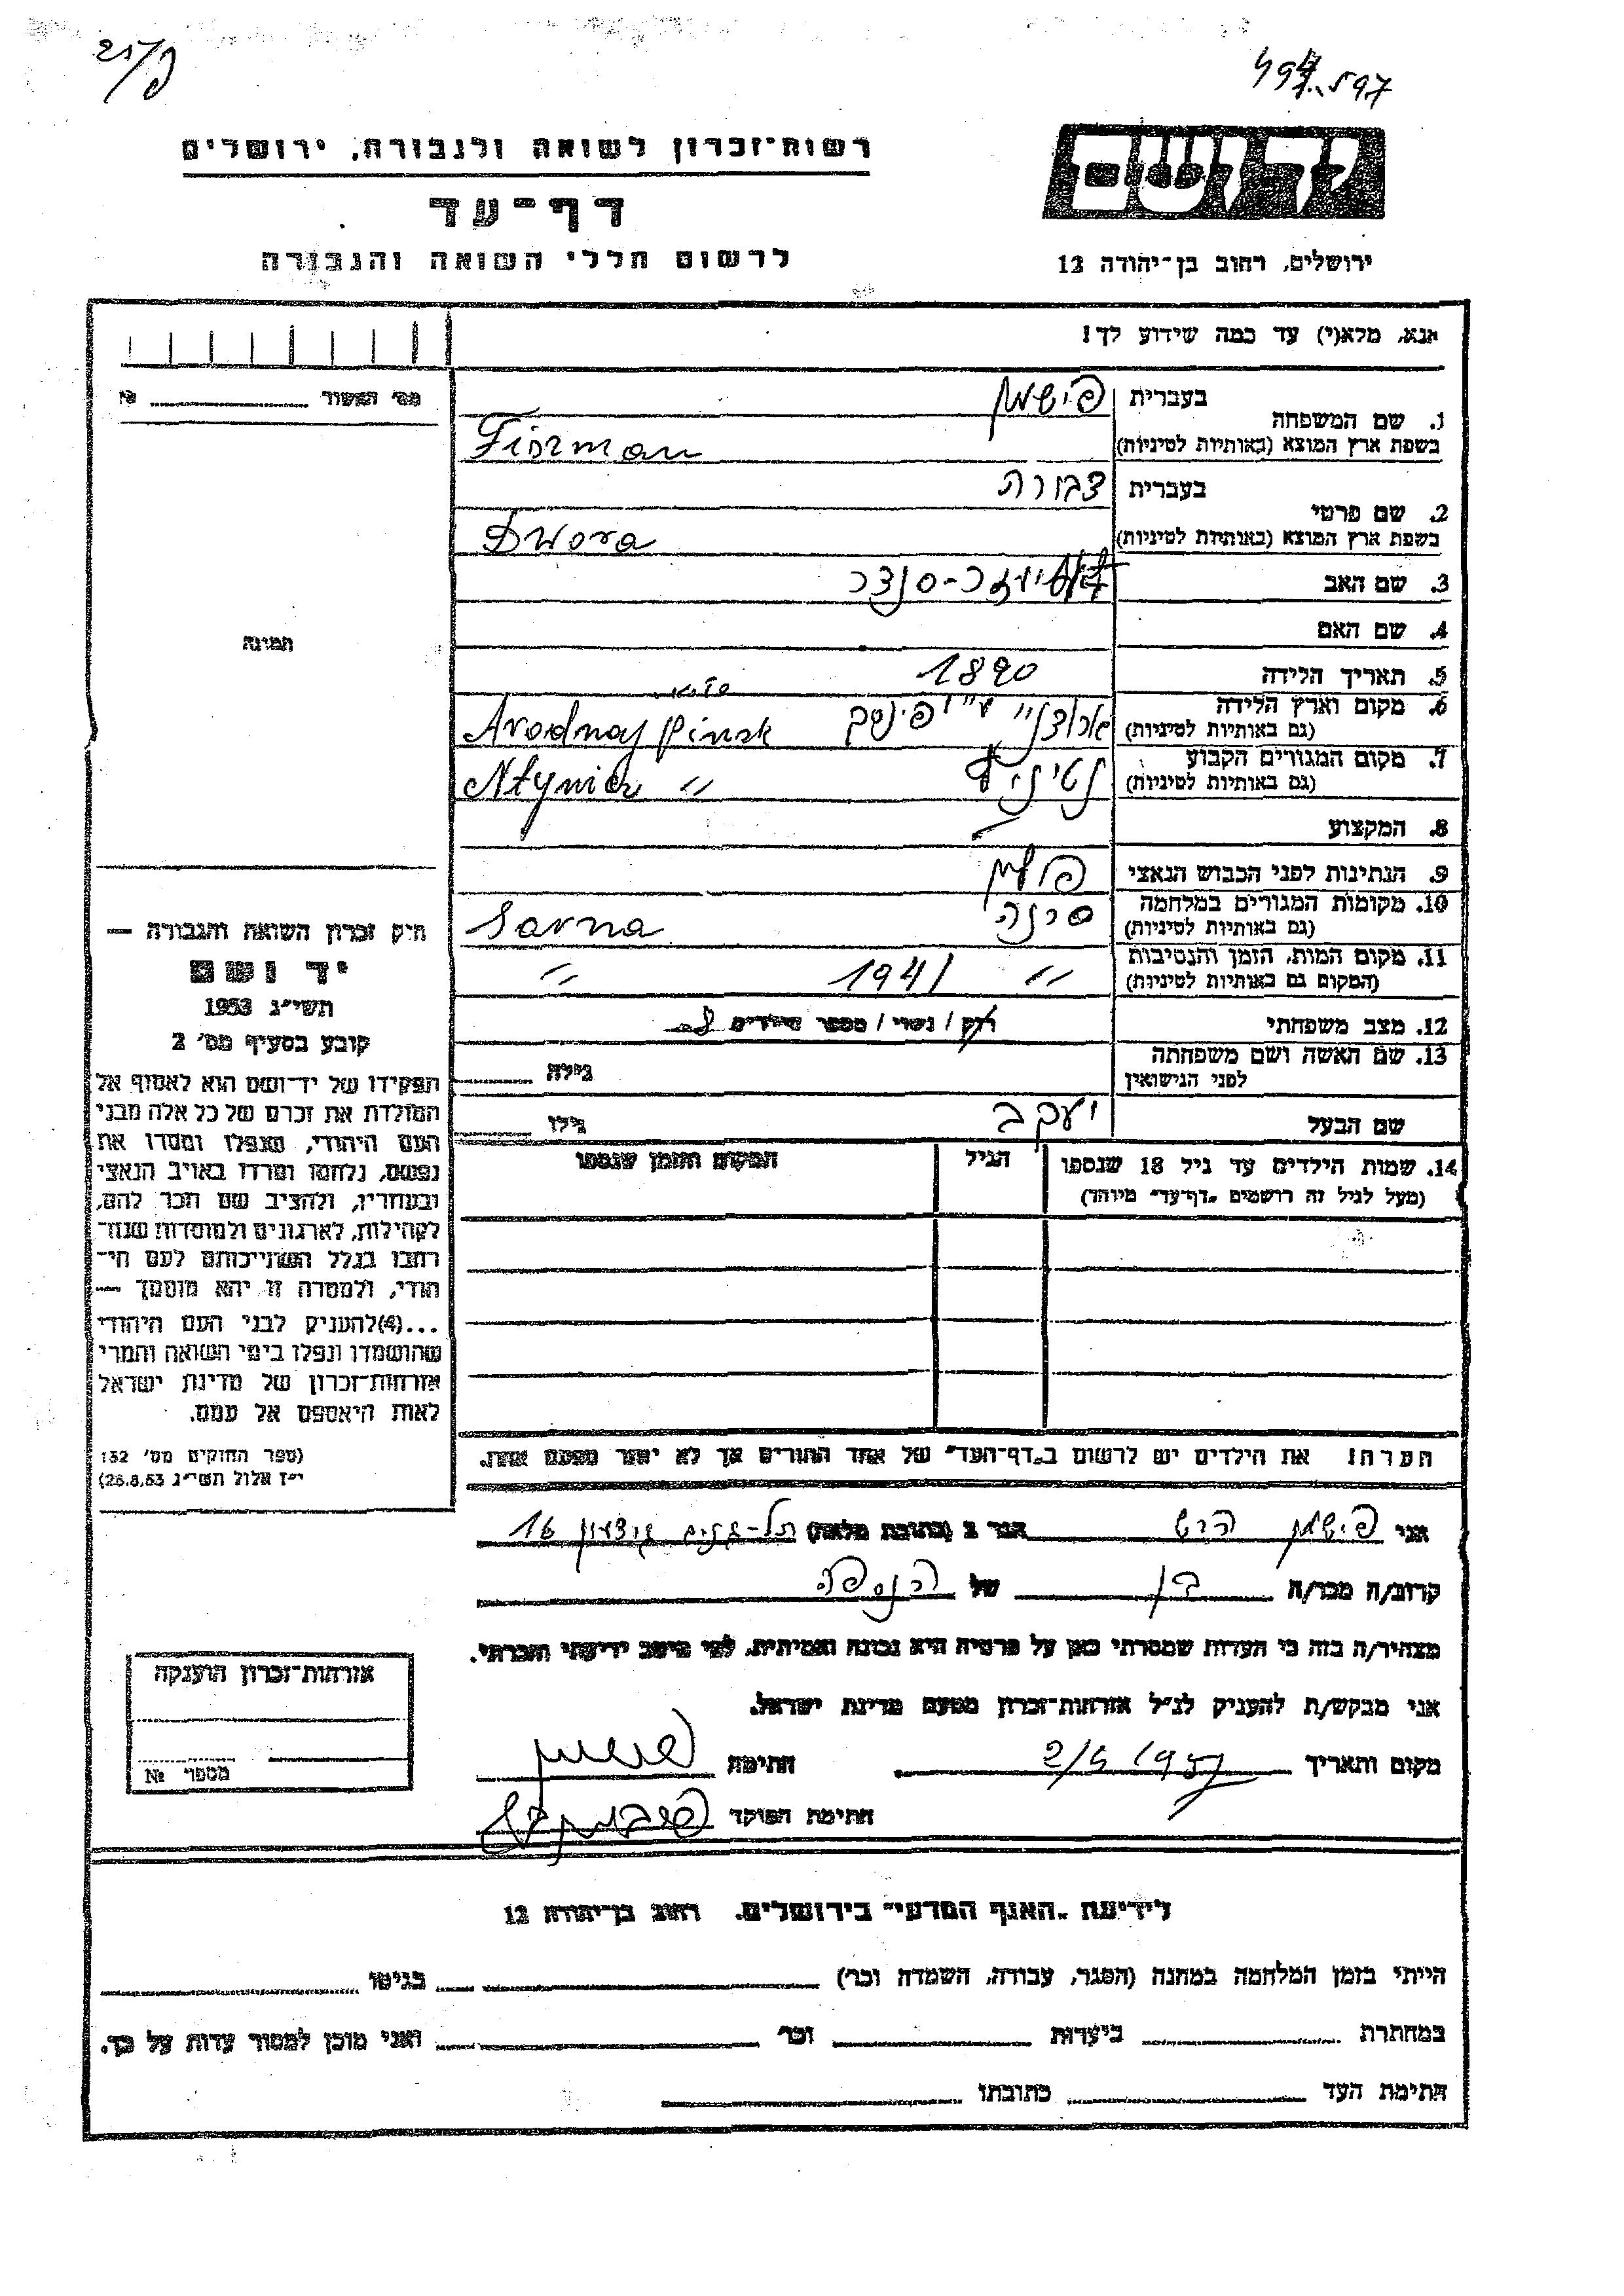 רשות־זכרון לשואה ולגבורה, ירושלים
דף־עד
לרשום חללי השואה והגבורה
יד ושם
ירושלים, רחוב בן־יהודה 12
אנא, מלא(י) עד כמה שידוע לך!
מס׳ האשור № 
1. שם המשפחה
בעברית פישמן
בשפת ארץ המוצא (באותיות לטיניות) Fiszman
2. שם פרטי
בעברית דבורה
בשפת ארץ המוצא (באותיות לטיניות) Dwora
3. שם האב
4. שם האם
5. תאריך הלידה 1890
6. מקום וארץ הלידה
(גם באותיות לטיניות) Pinsk ע״י פינסק
7. מקום המגורים הקבוע
(גם באותיות לטיניות) "
8. המקצוע —
9. הנתינות לפני הכבוש הנאצי פולין
10. מקומות המגורים במלחמה
(גם באותיות לטיניות) סרנה Sarna
11. מקום המות, הזמן והנסיבות
(המקום גם באותיות לטיניות) " 1941 "
12. מצב משפחתי רוק / נשוי / מספר הילדים
13. שם האשה ושם משפחתה
לפני הנישואין
גילה
שם הבעל יעקב גילו
14. שמות הילדים עד גיל 18 שנספו
(מעל לגיל זה רושמים "דף־עד" מיוחד)
הגיל
המקום והזמן שנספו
תמונה
חוק זכרון השואה והגבורה —
יד ושם
תשי״ג 1953
קובע בסעיף מס׳ 2
תפקידו של יד־ושם הוא לאסוף אל
המולדת את זכרם של כל אלה מבני
העם היהודי, שנפלו ומסרו את
נפשם, נלחמו ומרדו באויב הנאצי
ובעוזריו, ולהציב שם וזכר להם,
לקהילות, לארגונים ולמוסדות שנח־
רבו בגלל השתייכותם לעם הי־
הודי, ולמטרה זו יהא מוסמך —
...(4)להעניק לבני העם היהודי
שהושמדו ונפלו בימי השואה והמרי
אזרחות־זכרון של מדינת ישראל
לאות היאספם אל עמם.
(ספר החוקים מס׳ 132
י״ז אלול תשי״ג 28.8.53)
הערה! את הילדים יש לרשום ב"דף־העד" של אחד ההורים אך לא יותר מפעם אחת.
אני פישמן הרש הגר ב (כתובת מלאה) 16
קרוב/ה מכר/ה בן של הנספה
מצהיר/ה בזה כי העדות שמסרתי כאן על פרטיה היא נכונה ואמיתית, לפי מיטב ידיעתי והכרתי.
אני מבקש/ת להעניק לנ״ל אזרחות־זכרון מטעם מדינת ישראל.
מקום ותאריך 2/5 1957 חתימה פישמן
חתימת הפוקד
אזרחות־זכרון הוענקה
מספר №
לידיעת "האגף המדעי" בירושלים, רחוב בן־יהודה 12
הייתי בזמן המלחמה במחנה (הסגר, עבודה, השמדה וכו׳) בגיטו
במחתרת ביערות וכו׳ ואני מוכן למסור עדות על כך.
חתימת העד כתובתו